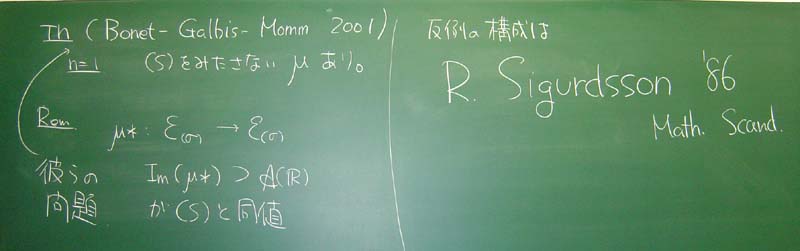 Th (Bonet-Galbis-Momm 2001)
n=1 (S)をみたさない μ あり。
Rem μ*: ℰ(σ) → ℰ(σ)
彼らの Im(μ*) ⊃ A(ℝ)
問題 が(S)と同値
反例の構成は
R. Sigurdsson '86
Math. Scand.